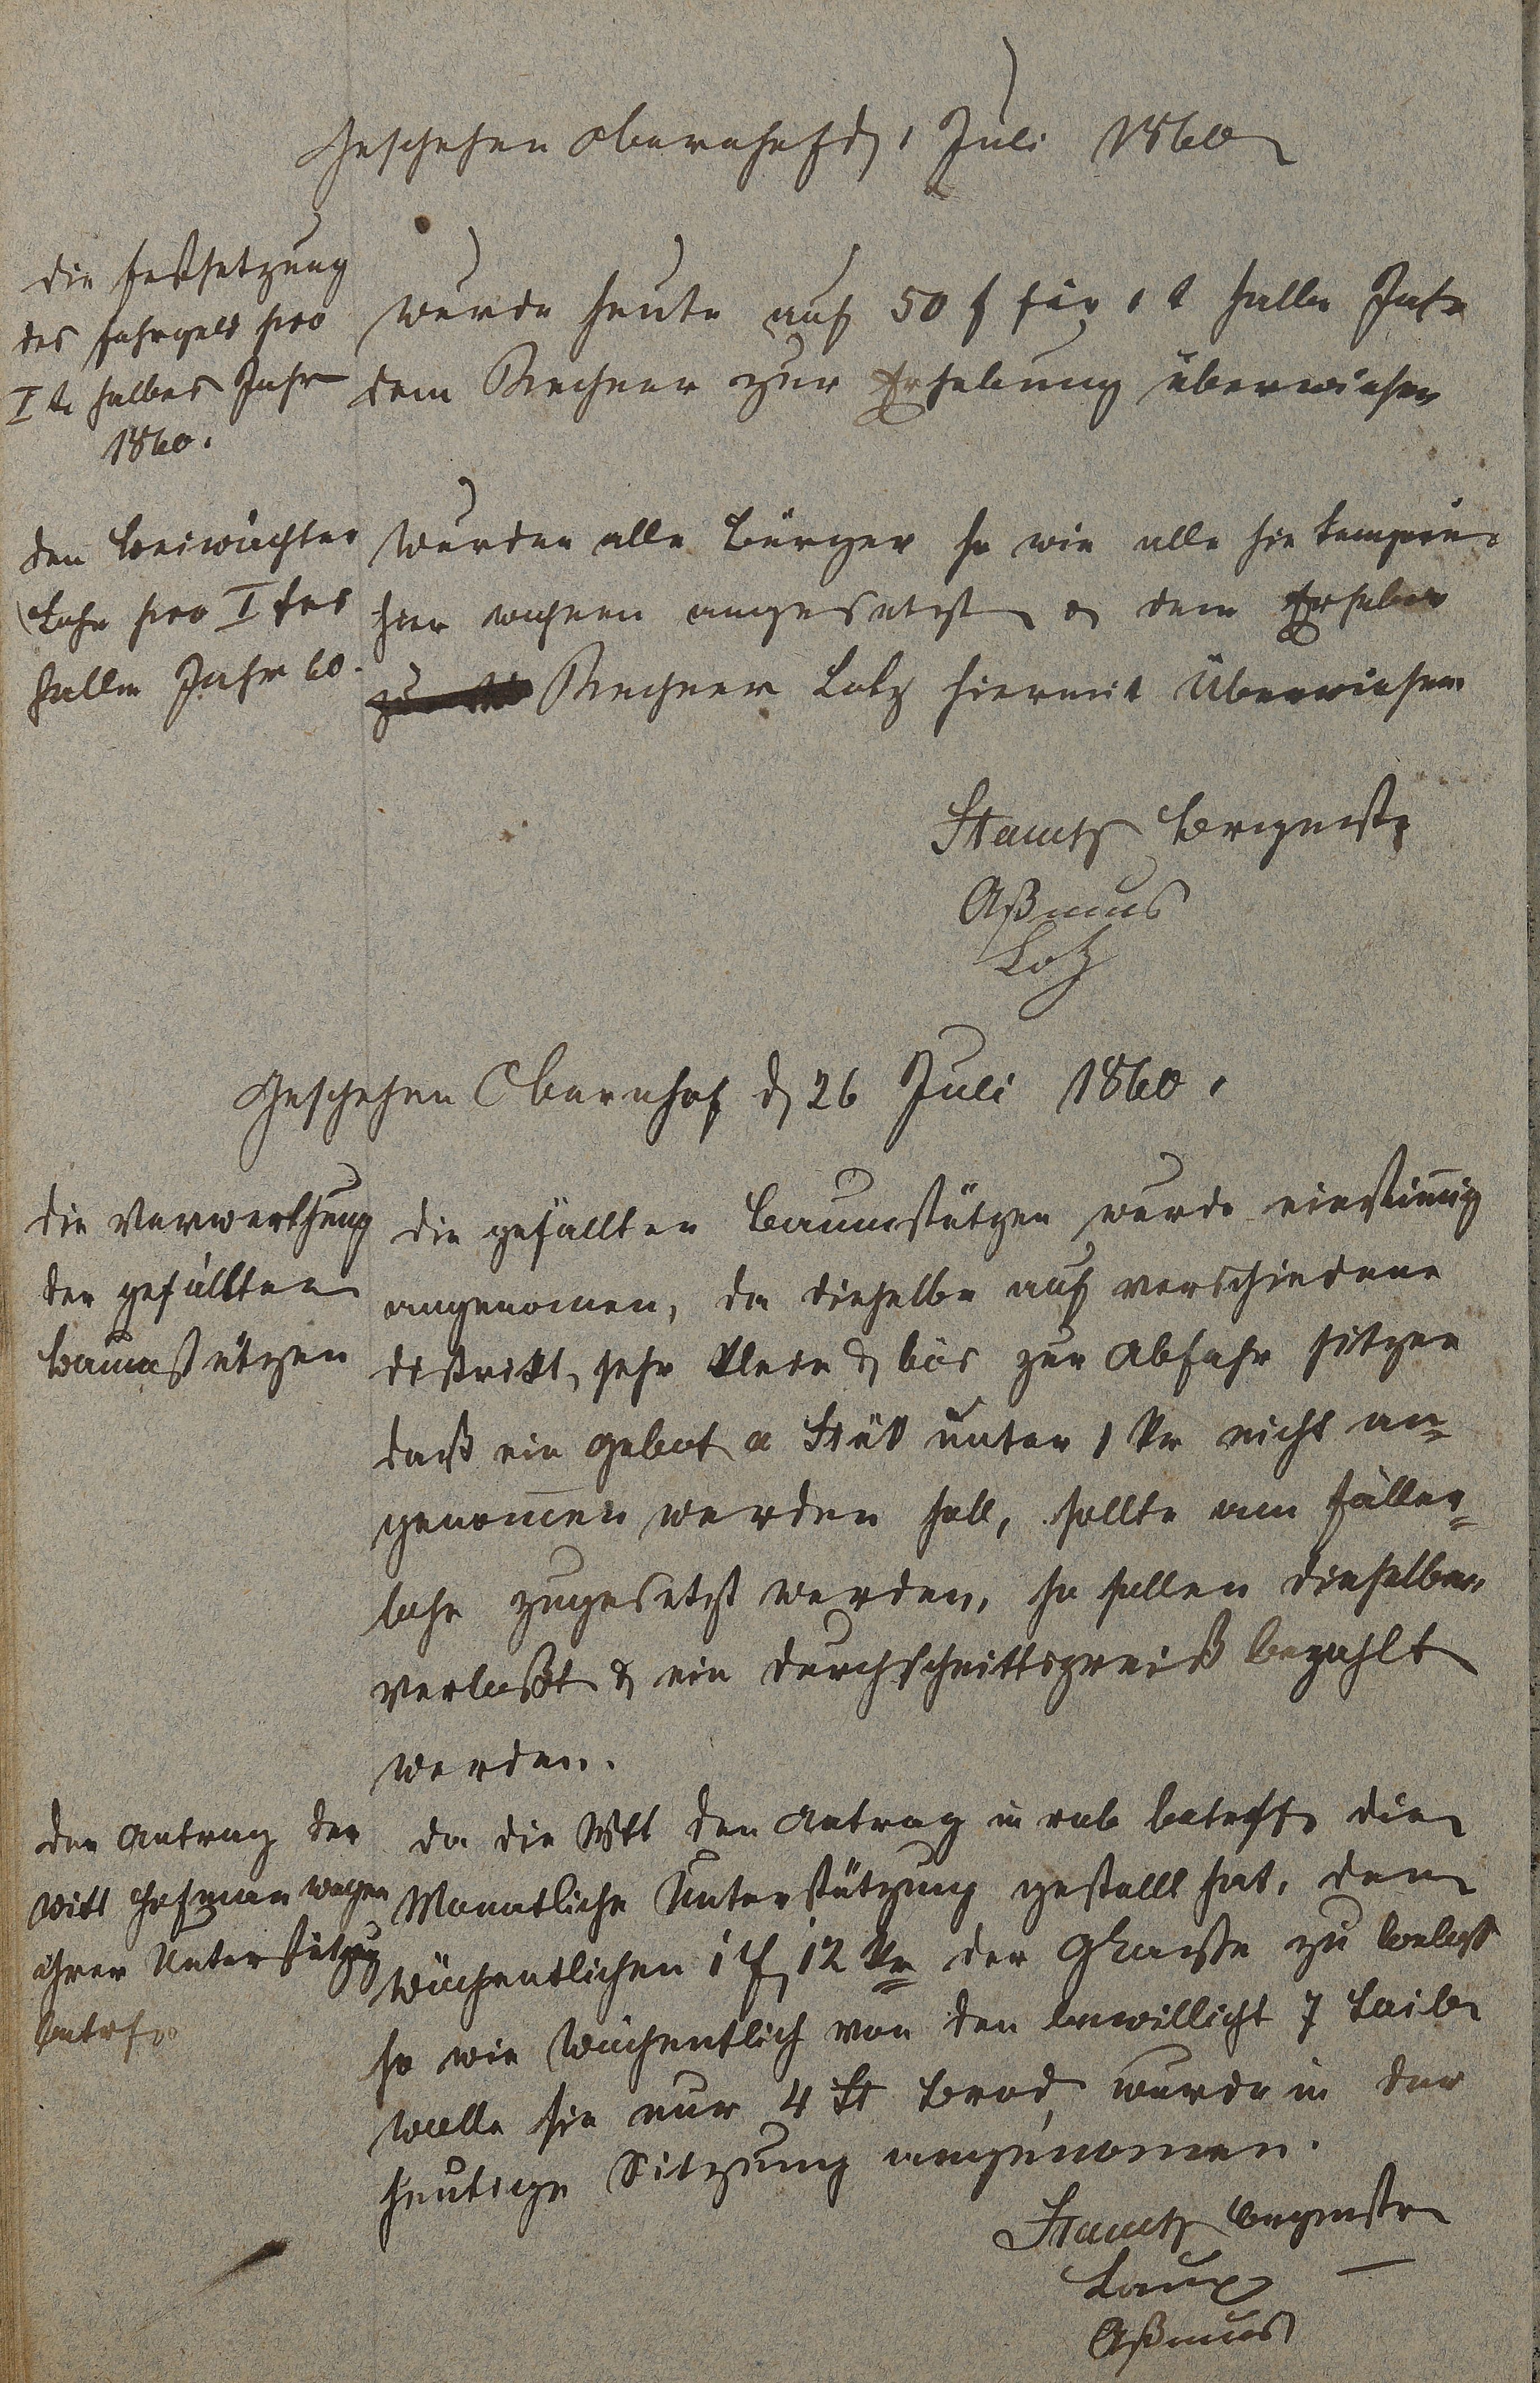 Geschehen Obernhof d 1 Juli 1860
Die Festsetzung
des Fahrgeld pro
I te halbes Jahr
1860.
wurde heute auf 50 f für 1 t halbe Jahr
dem Rechner zur Erhebung überwiesen
den Beiwächter
Lohn pro I tes
halbe Jahr 60.
wurden alle Bürger so wie alle die
hier wohnen angesetzt & dem Erheber
Rechner Lotz hiermit Überwiesen
Stamtz Brgmstr
Aßmus
Lotz
Geschehen Obernhof d 26 Juli 1860.
die Verwerthung
der gefällten
Baumstützen
die gefällten Baumstützen wurde einstimig
angenomen, da dieselbe auf verschiedene
distrikt, sehr klein & bös zur Abfahr sitzen
daß ein Gebot a Stük unter 1 kr nicht an-
genomen werden soll, sollte am Fäller-
lohn zugesetzt werden, so sollen dieselben
verloßt & ein Durchschnittspreiß bezahlt
werden.
der Antrag der
Witt Hofman wegen
ihrer Unterstützung
betrf.
da die Wtt den Antrag in betreff die
Monatliche Unterstützung gestellt hat, den
wöchentlichen 1 f 12 kr der zu
so wie wöchentlich von den bewillicht 7 Laib
wolle sie nur 4 St Brod, wurde in der
heutige Sitzung angenomen.
Stamtz Brgmstr
Laux
Aßmus